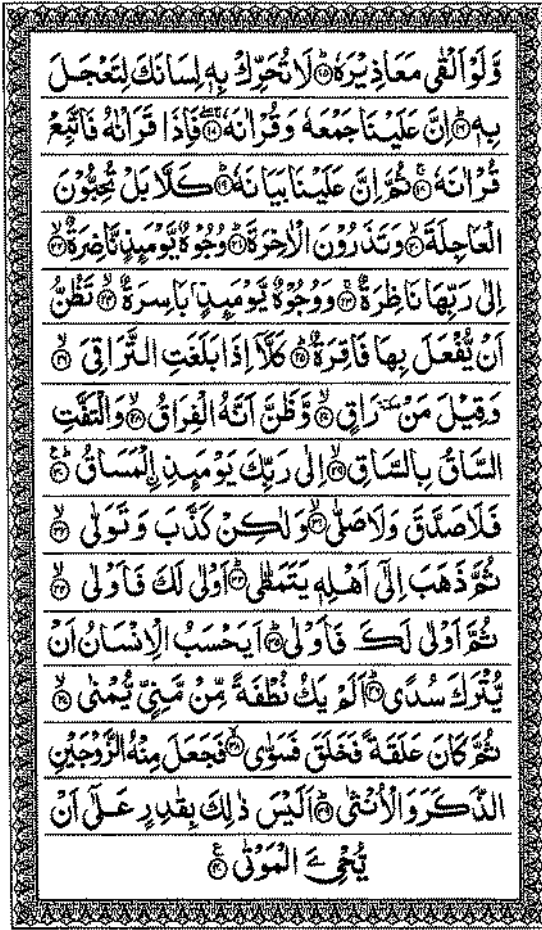 وَّلَوْ اَلْقٰى مَعَاذِيْرَهٗ ۝١٥ لَا تُحَرِّكْ بِهٖ لِسَانَكَ لِتَعْجَلَ
بِهٖ ۝١٦ اِنَّ عَلَيْنَا جَمْعَهٗ وَقُرْاٰنَهٗ ۝١٧ فَاِذَا قَرَاْنٰهُ فَاتَّبِعْ
قُرْاٰنَهٗ ۝١٨ ثُمَّ اِنَّ عَلَيْنَا بَيَانَهٗ ۝١٩ كَلَّا بَلْ تُحِبُّوْنَ
الْعَاجِلَةَ ۝٢٠ وَتَذَرُوْنَ الْاٰخِرَةَ ۝٢١ وُجُوْهٌ يَّوْمَىِٕذٍ نَّاضِرَةٌ ۝٢٢
اِلٰى رَبِّهَا نَاظِرَةٌ ۝٢٣ وَوُجُوْهٌ يَّوْمَىِٕذٍۭ بَاسِرَةٌ ۝٢٤ تَظُنُّ
اَنْ يُّفْعَلَ بِهَا فَاقِرَةٌ ۝٢٥ كَلَّاۤ اِذَا بَلَغَتِ التَّرَاقِىَ ۝٢٦
وَقِيْلَ مَنْ سكتة رَاقٍ ۝٢٧ وَّظَنَّ اَنَّهُ الْفِرَاقُ ۝٢٨ وَالْتَفَّتِ
السَّاقُ بِالسَّاقِ ۝٢٩ اِلٰى رَبِّكَ يَوْمَىِٕذِ ۨالْمَسَاقُ ۝٣٠
فَلَا صَدَّقَ وَلَا صَلّٰى ۝٣١ وَلٰكِنْ كَذَّبَ وَتَوَلّٰى ۝٣٢
ثُمَّ ذَهَبَ اِلٰۤى اَهْلِهٖ يَتَمَطّٰى ۝٣٣ اَوْلٰى لَكَ فَاَوْلٰى ۝٣٤
ثُمَّ اَوْلٰى لَكَ فَاَوْلٰى ۝٣٥ اَيَحْسَبُ الْاِنْسَانُ اَنْ
يُّتْرَكَ سُدًى ۝٣٦ اَلَمْ يَكُ نُطْفَةً مِّنْ مَّنِىٍّ يُّمْنٰى ۝٣٧
ثُمَّ كَانَ عَلَقَةً فَخَلَقَ فَسَوّٰى ۝٣٨ فَجَعَلَ مِنْهُ الزَّوْجَيْنِ
الذَّكَرَ وَالْاُنْثٰى ۝٣٩ اَلَيْسَ ذٰلِكَ بِقٰدِرٍ عَلٰۤى اَنْ
يُّحْیِۦَ الْمَوْتٰى ۝٤٠